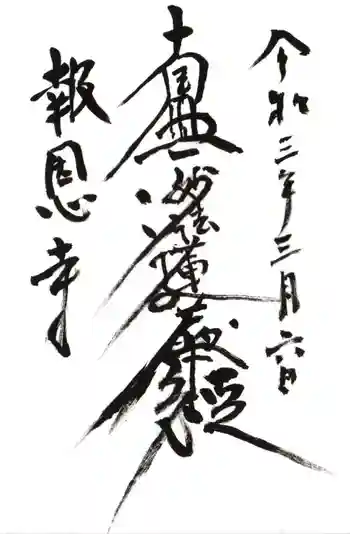 令和三年三月六日
南無妙法蓮華経
報恩寺